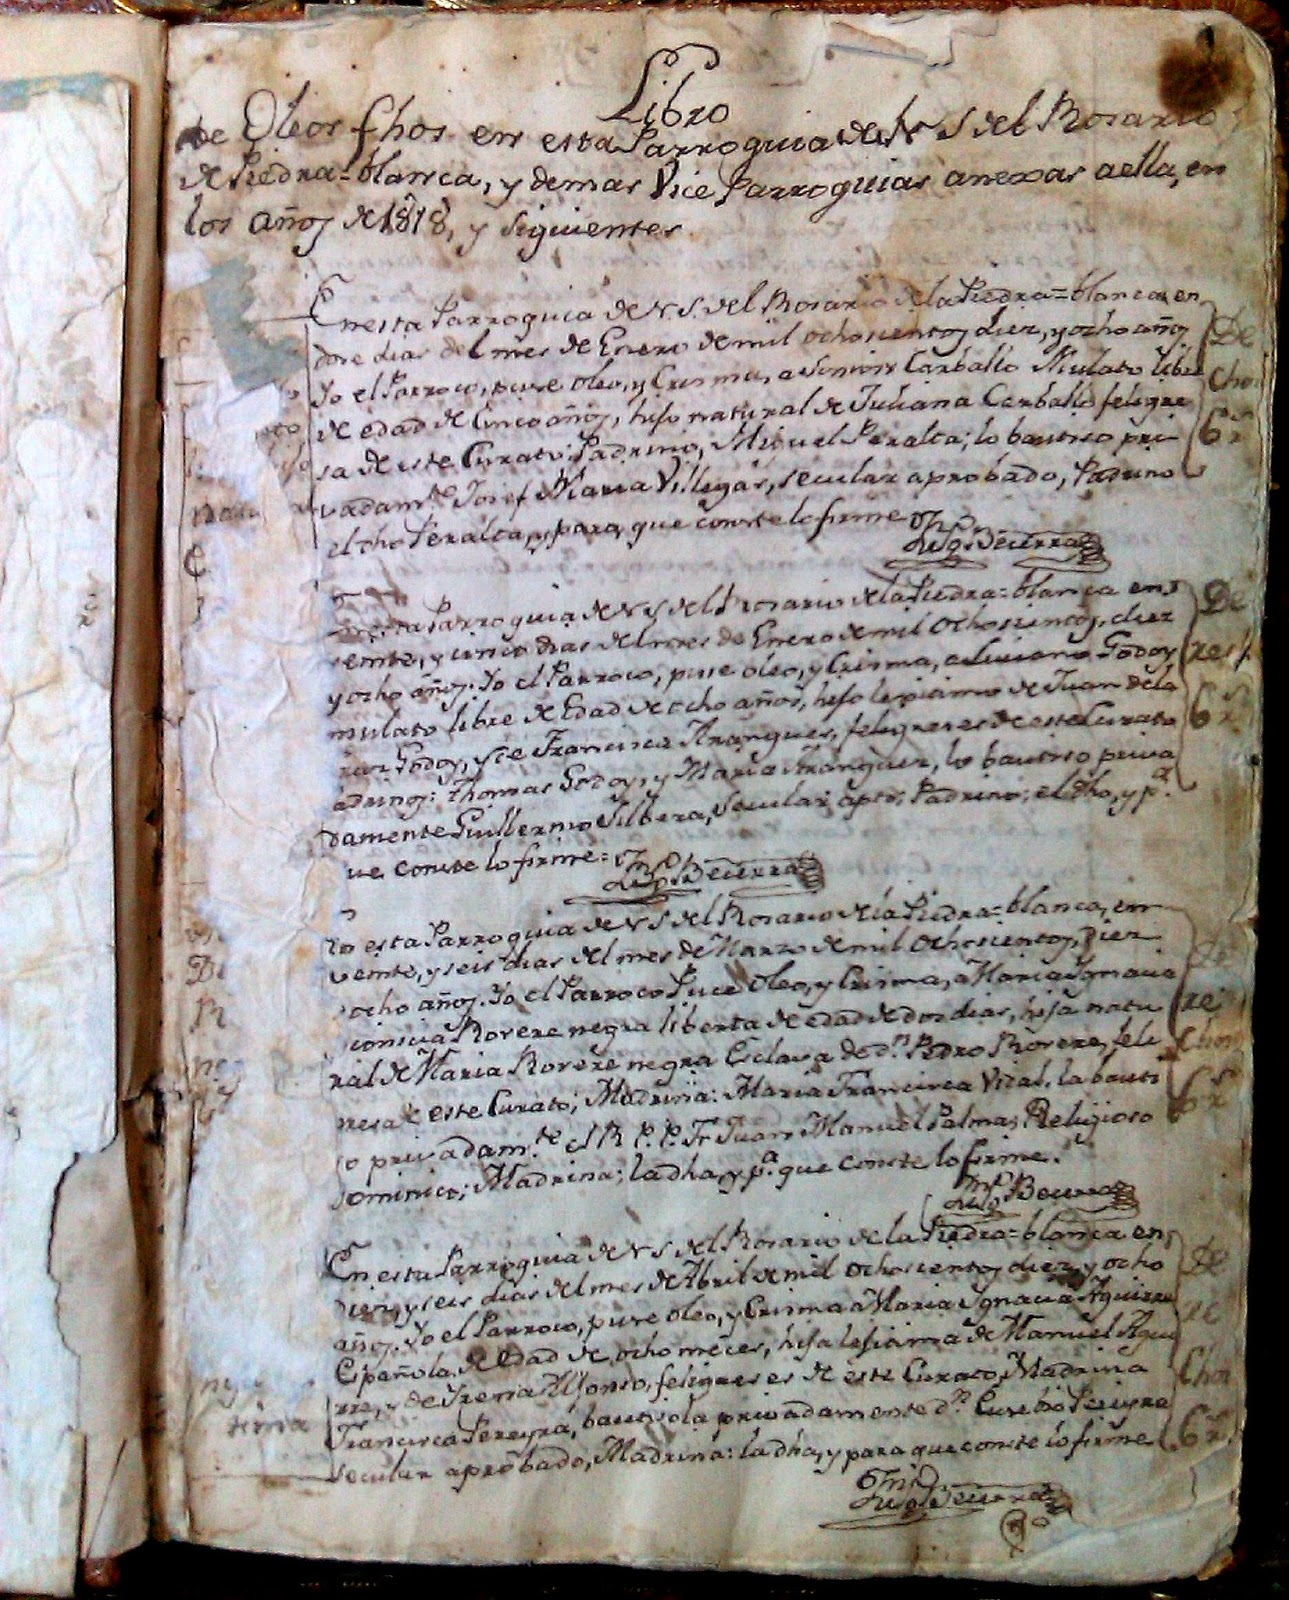 Libro
de Oleos fhos en esta Parroquia de N S del Rosario
de Piedra=blanca, y demas Vice Parroquias anexas aella, en
los años de 1818, y siguientes.
En esta Parroquia de N. S. del Rosario de la Piedra=blanca en
dose dias del mes de Enero de mil ochosientos diez, y ocho años
Yo el Parroco, puse oleo, y Crisma, a Carballo Mulato libre
de edad de Cinco años, hijo natural de Juliana Carballo feligre
sa de este Curato: Padrino, Miguel Peralta; lo bautiso pri
vadam.te Josef Maria Villegas, secular aprobado, Padrino
el dho Peralta, y para que conste lo firmé
Becerra
esta Parroquia de N S del Rosario de la Piedra=blanca en
veinte, y cinco dias del mes de Enero de mil Ochosientos, diez
y ocho años. Yo el Parroco, puse oleo, y Crisma, a Luciano Godoy
mulato libre de Edad de ocho años, hijo lejitimo de Juan de la
Godoy, y de Francisca Aranguez, feligreses de este Curato
adrinos: Thomas Godoy, y Maria Aranguez, lo bautiso priva
damente Guillermo Silbera, Secular apto; Padrino; el dho, y p.a
ue conste lo firme=
Becerra
en esta Parroquia de N S del Rosario de la Piedra=blanca, en
veinte, y seis dias del mes de Marzo de mil Ochosientos, Diez
ocho años. Yo el Parroco Puse Oleo, y Crisma, á Maria Ygnacia
Rovere negra liberta de edad de dos dias, hija natu
ral de Maria Rovere negra Esclava de d.n Pedro Rovere, feli
resa de este Curato; Madrina: Maria Francisca Vital, la bauti
so privadam.te el R. P. P. Fr Juan Manuel Palma; Religioso
ominico; Madrina; la dha, y p.a que conste lo firmé.
Becerra
En esta Parroquia de N S del Rosario de la Piedra=blanca en
diez, y seis dias del mes de Abril de mil ochosientos diez, y ocho
años. Yo el Parroco, puse oleo, y Crisma á Maria Ygnacia Aguirre
Española, de edad de ocho meses, hija lejitima de Manuel Agui
rre, y de Yrenia Alfonso, feligreses de este Curato, Madrina
Francisca Pereyra, bautisola privadamente d.n Eusebio Pereyra
secular aprobado, Madrina: la dha, y para que conste lo firmé
Becerra